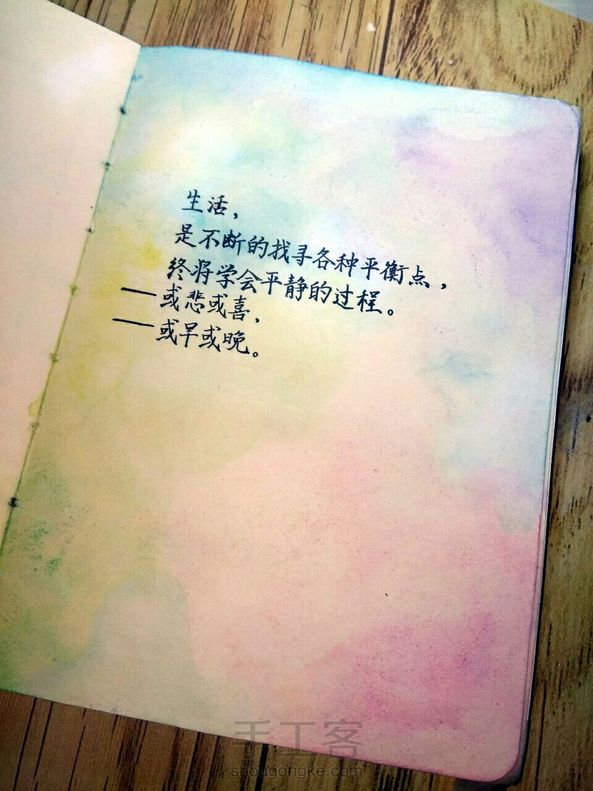 生活，
是不断的找寻各种平衡点，
终将学会平静的过程。
——或悲或喜，
——或早或晚。
手工客
shougongke.com